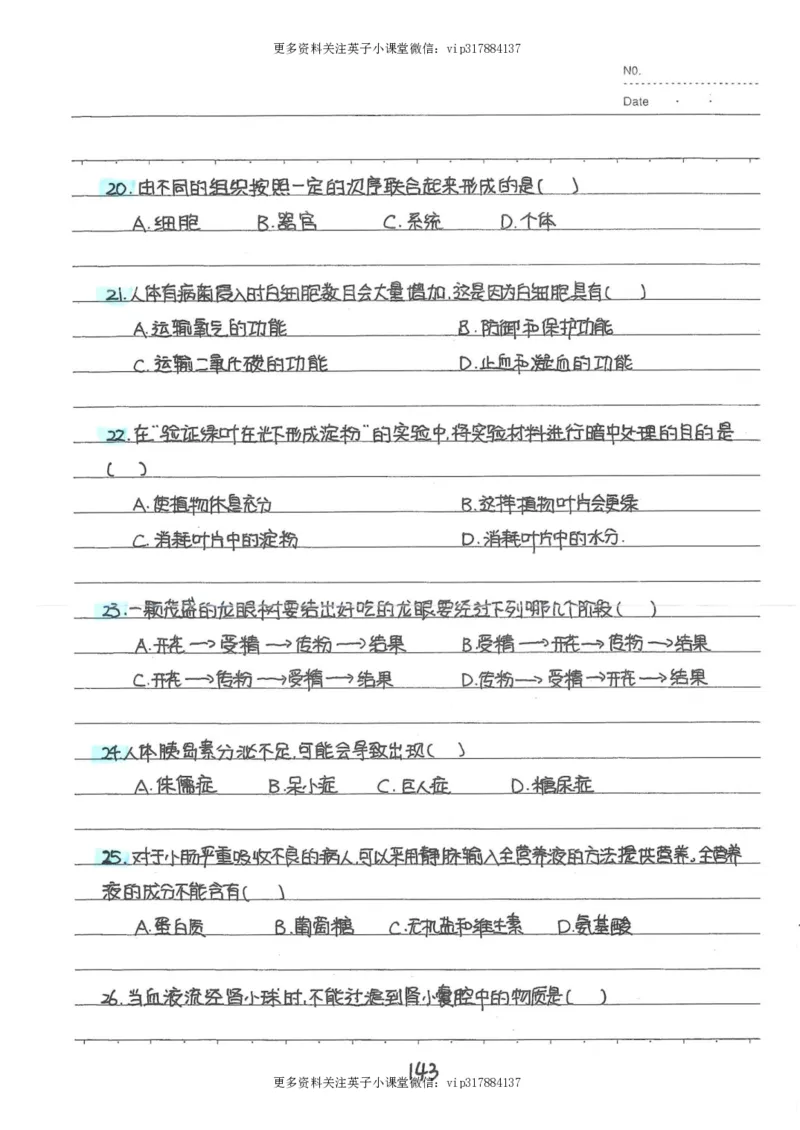 更多资料关注英子小课堂微信：vip317884137
NO.
Date · ·
20.由不同的组织按照一定的次序联合起来形成的是( )
A.细胞 B.器官 C.系统 D.个体
21.人体有病菌侵入时白细胞数目会大量增加,这是因为白细胞具有( )
A.运输氧气的功能 B.防御和保护功能
C.运输二氧化碳的功能 D.止血和凝血的功能
22.在“验证绿叶在光下形成淀粉”的实验中,将实验材料进行暗中处理的目的是
( )
A.使植物休息充分 B.这样植物叶片会更绿
C.消耗叶片中的淀粉 D.消耗叶片中的水分.
23.一颗茂盛的龙眼树要结出好吃的龙眼要经过下列哪几个阶段( )
A.开花→受精→传粉→结果 B.受精→开花→传粉→结果
C.开花→传粉→受精→结果 D.传粉→受精→开花→结果
24.人体胰岛素分泌不足,可能会导致出现( )
A.侏儒症 B.呆小症 C.巨人症 D.糖尿症
25.对于小肠严重吸收不良的病人,可以采用静脉输入全营养液的方法提供营养。全营养
液的成分不能含有( )
A.蛋白质 B.葡萄糖 C.无机盐和维生素 D.氨基酸
26.当血液流经肾小球时,不能过滤到肾小囊腔中的物质是( )
143
更多资料关注英子小课堂微信：vip317884137